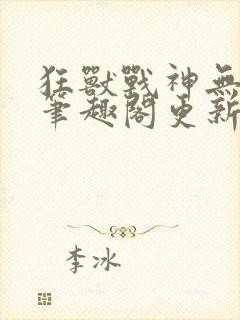 狂獸戰神無
筆趣閣更新
李冰